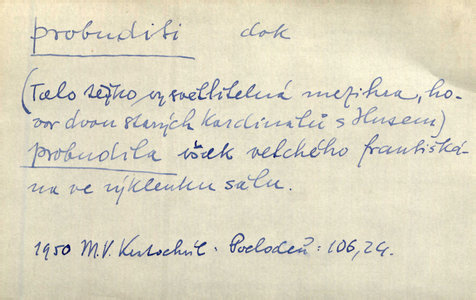 probuditi dok
(Tato těžko vysvětlitelná mezihra, ho-
vor dvou starých kardinálů s Husem)
probudila však vetchého františká-
na ve výklenku sálu.
1950 M.V. Kratochvíl. Pochodeň: 106,24.